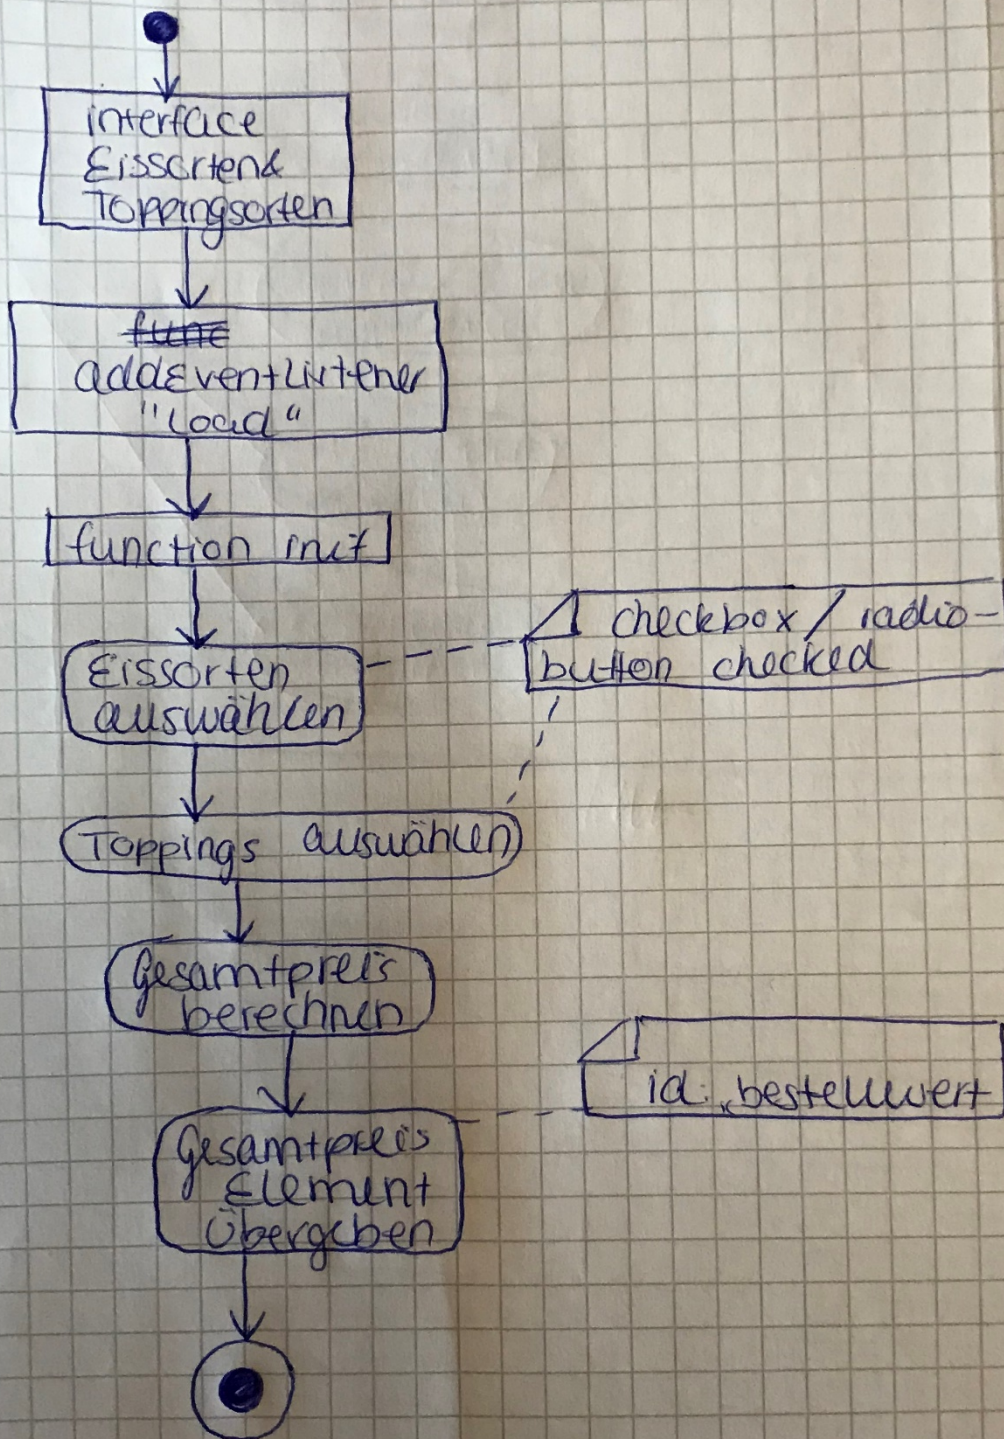 interface
Eissorten&
Toppingsorten
func
addEventListener
"load"
function init
Eissorten
auswählen
checkbox / radio-
button checked
Toppings auswählen
Gesamtpreis
berechnen
id: „bestellwert
Gesamtpreis
Element
übergeben